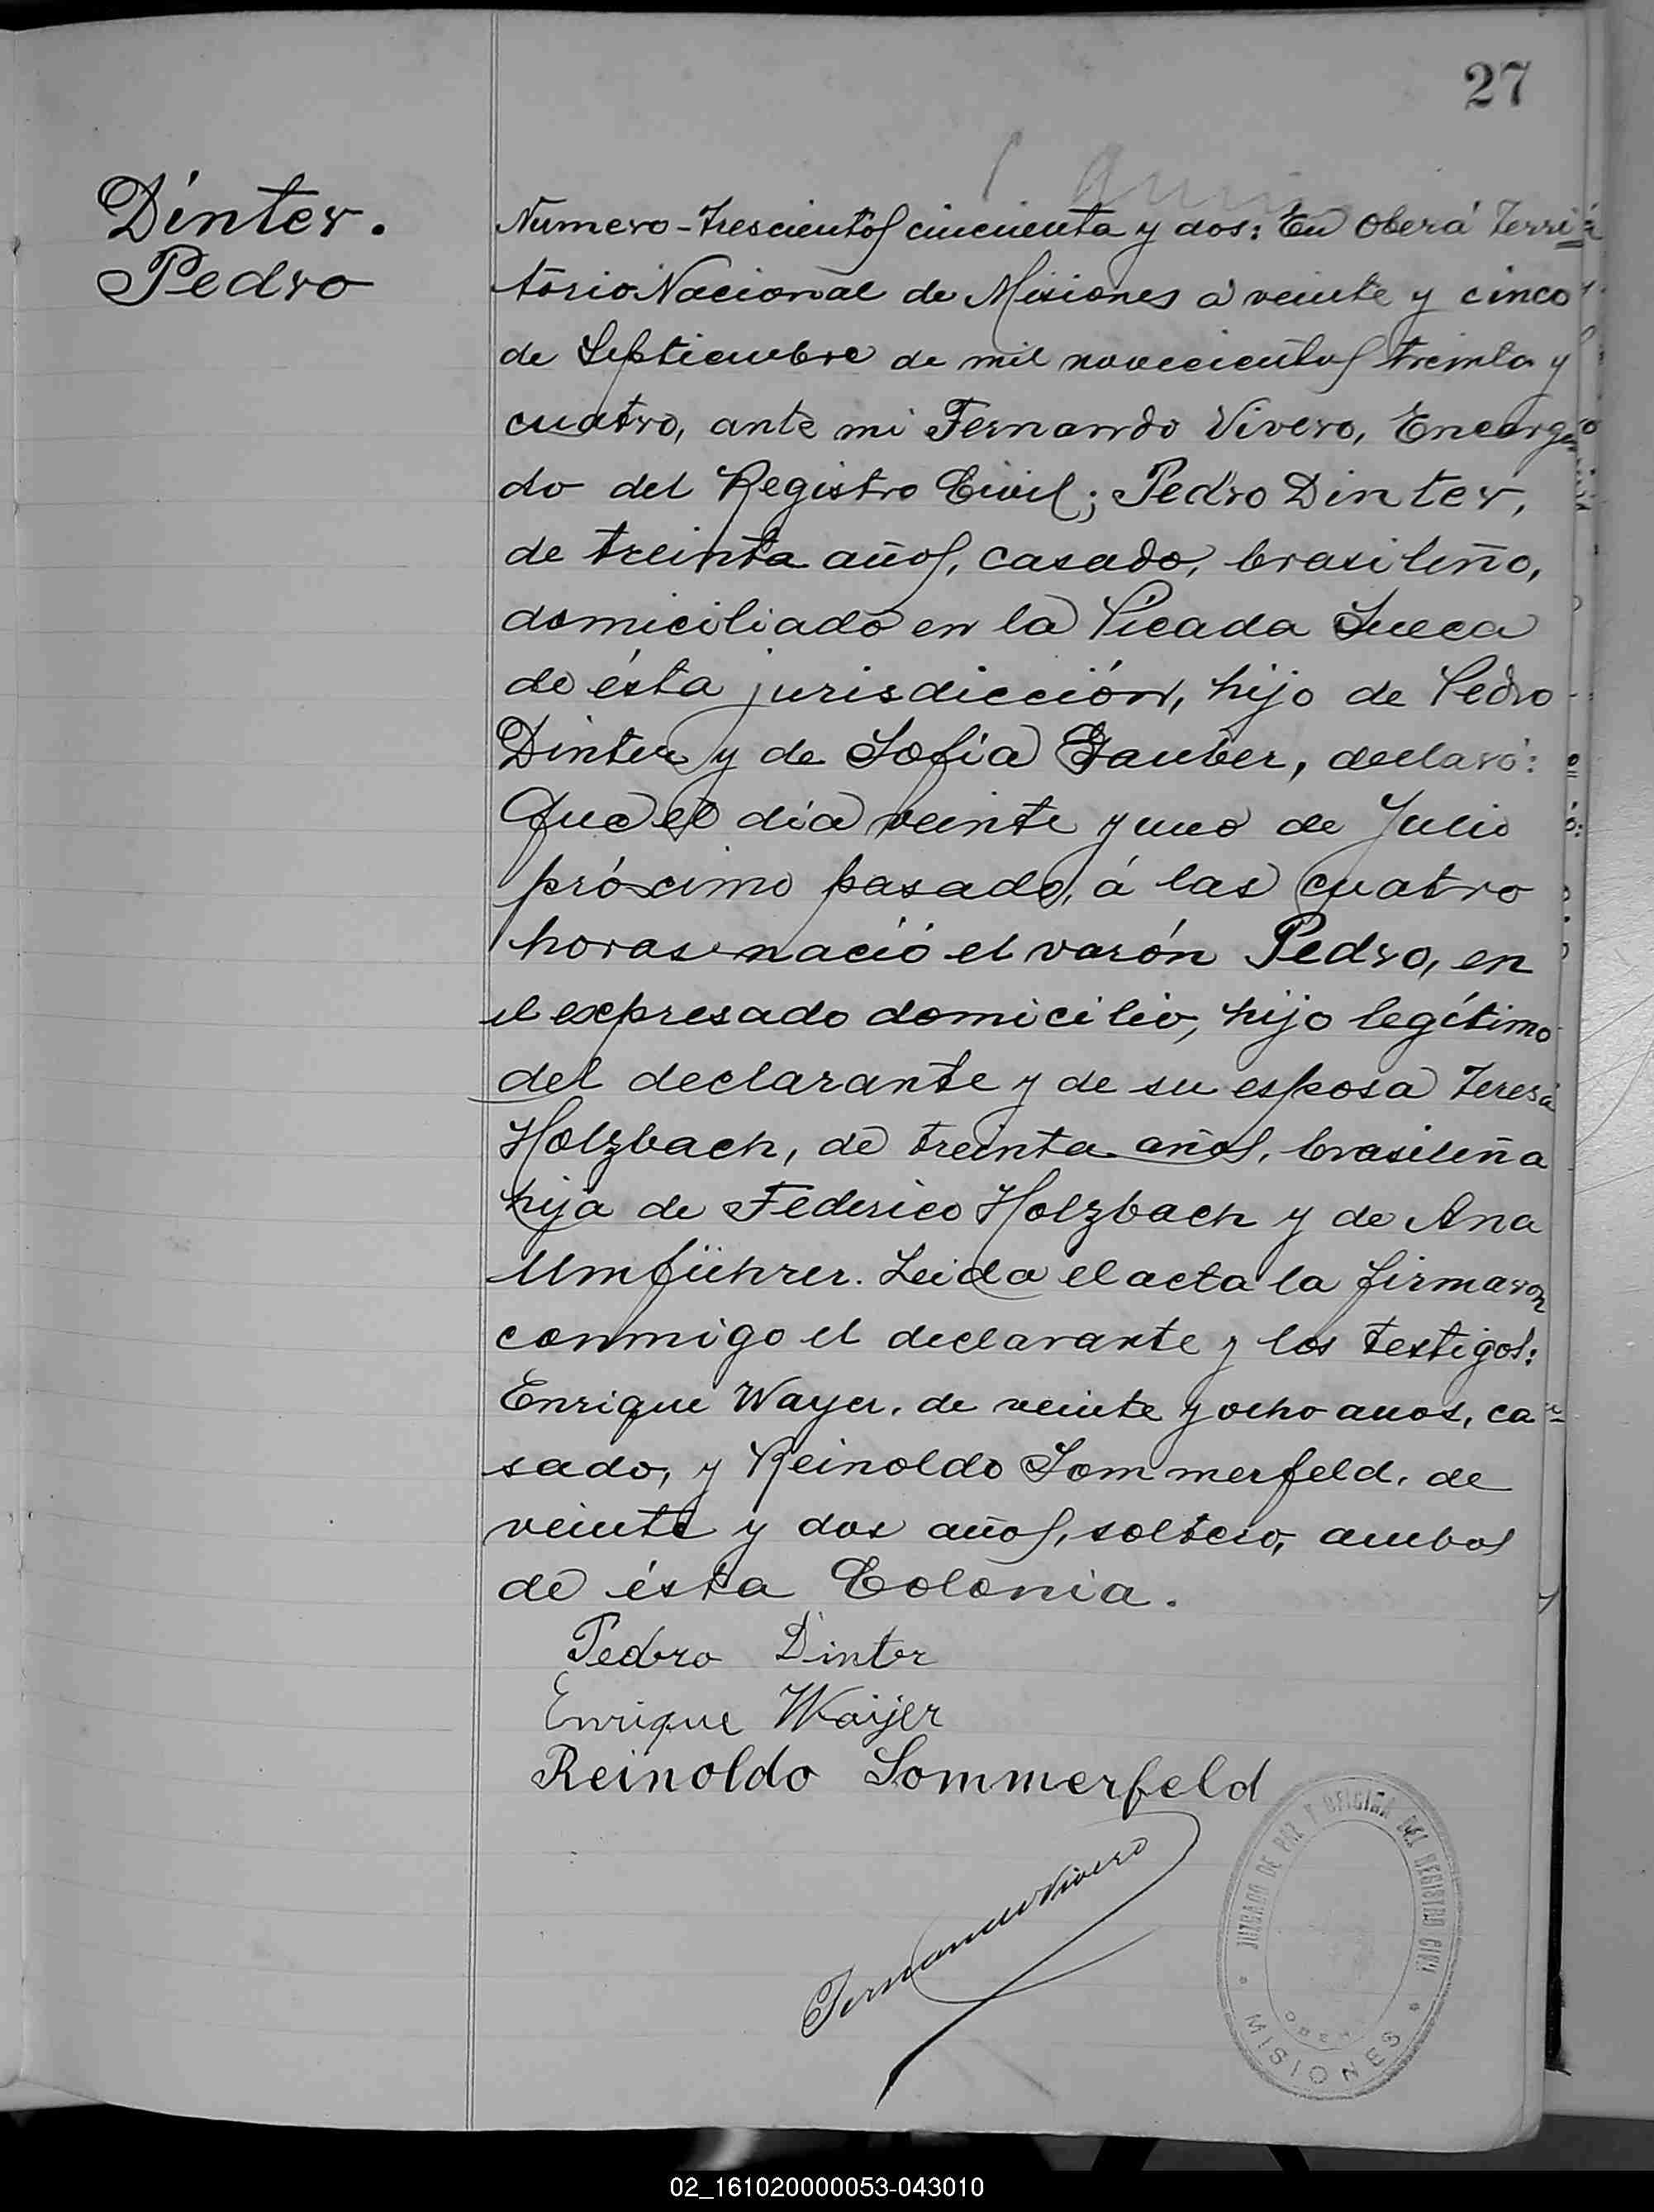 27
Dinter.
Pedro
Numero-trescientos cincuenta y dos: En Oberá Terri
torio Nacional de Misiones á veinte y cinco
de Septiembre de mil novecientos treinta y
cuatro, ante mi Fernando Vivero, Encarga
do del Registro Civil; Pedro Dinter,
de treinta años, casado, brasileño,
domiciliado en la Picada Sueca
de ésta jurisdicción, hijo de Pedro
Dinter y de Sofia Tauber, declaró:
Que el día veinte y uno de Julio
próximo pasado, á las cuatro
horas nació el varón Pedro, en
el expresado domicilio, hijo legítimo
del declarante y de su esposa Teresa
Holzbach, de treinta años, brasileña
hija de Federico Holzbach y de Ana
Umführer. Leida el acta la firmaron
conmigo el declarante y los testigos:
Enrique Wayer, de veinte y ocho anos, ca
sado, y Reinoldo Sommerfeld, de
veinte y dos años, soltero, ambos
de ésta Colonia.
Pedro Dinter
Enrique Waijer
Reinoldo Sommerfeld
Fernando Vivero
JUZGADO DE PAZ Y OFICINA DEL REGISTRO CIVIL
OBERÁ
MISIONES
02_161020000053-043010